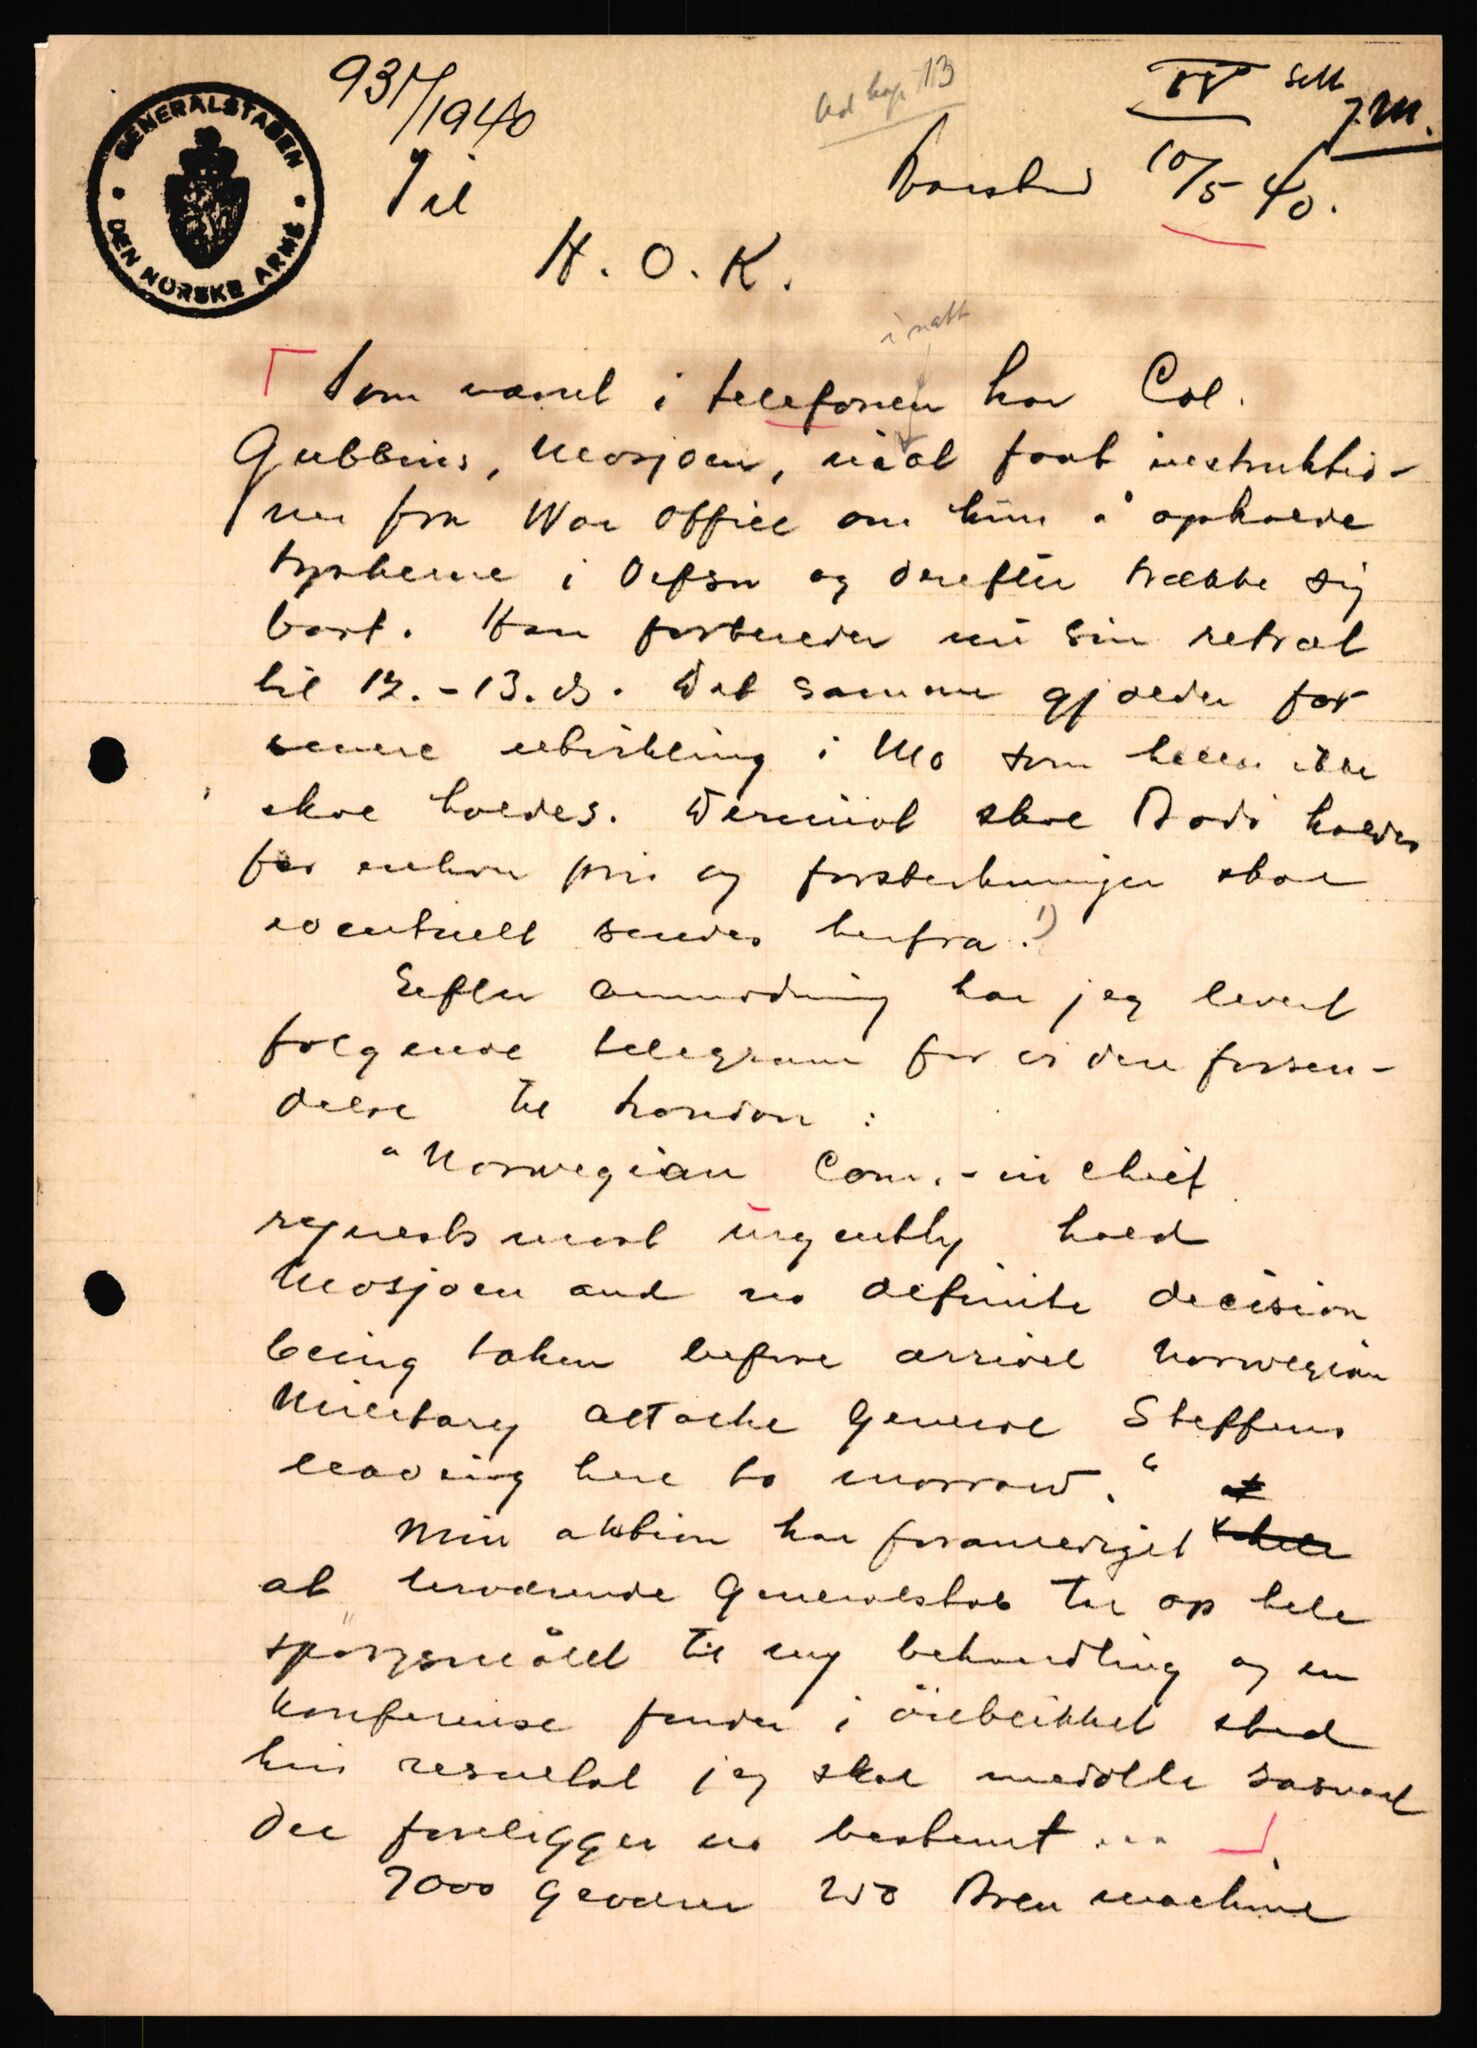 GENERALSTABEN
DEN NORSKE ARMÉ
937/1940
Ved kap 13
IV Sett
J.M.
Til
Harstad 10/5 40.
H. O. K.
i natt
Som nævnt i telefonen har Col.
Gubbins, Mosjøen, faat instruktio-
ner fra War Office om kun å opholde
tyskerne i Vefsn og derefter trække sig
bort. Han forbereder nu sin retræt
til 12.-13. ds. Det samme gjælder for
senere utvikling i Mo som heller ikke
skal holdes. Derimot skal Bodö holdes
for enhver pris og forsterkninger skal
eventuelt sendes herfra. 1)
Efter anmodning har jeg levert
følgende telegram for viden forsen-
delse til London :
"Norwegian Com.-in chief
requests most urgently hold
Mosjoen and no definite decision
being taken before arrival Norwegian
Military attache General Steffens
leaving here to morrow."
Min aktion har foranlediget
at herværende Generalstab tar op hele
spörgsmålet til ny behandling og en
konferense finder i öieblikket sted
hvis resultat jeg skal meddele saasnart
der foreligger no bestemt ...
7000 Geværer 250 Bren machine